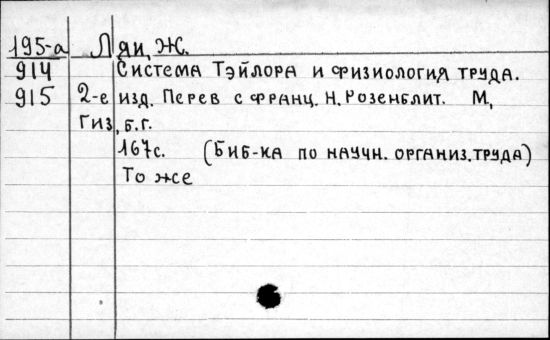 195-а Ляи, Ж.
914 Система Тэйлора и физиология труда.
915 2-е изд. Перев с франц. Н. Розенблит. М,
Гиз, б.г.
167с. (Биб-ка по научн. организ. труда)
То же